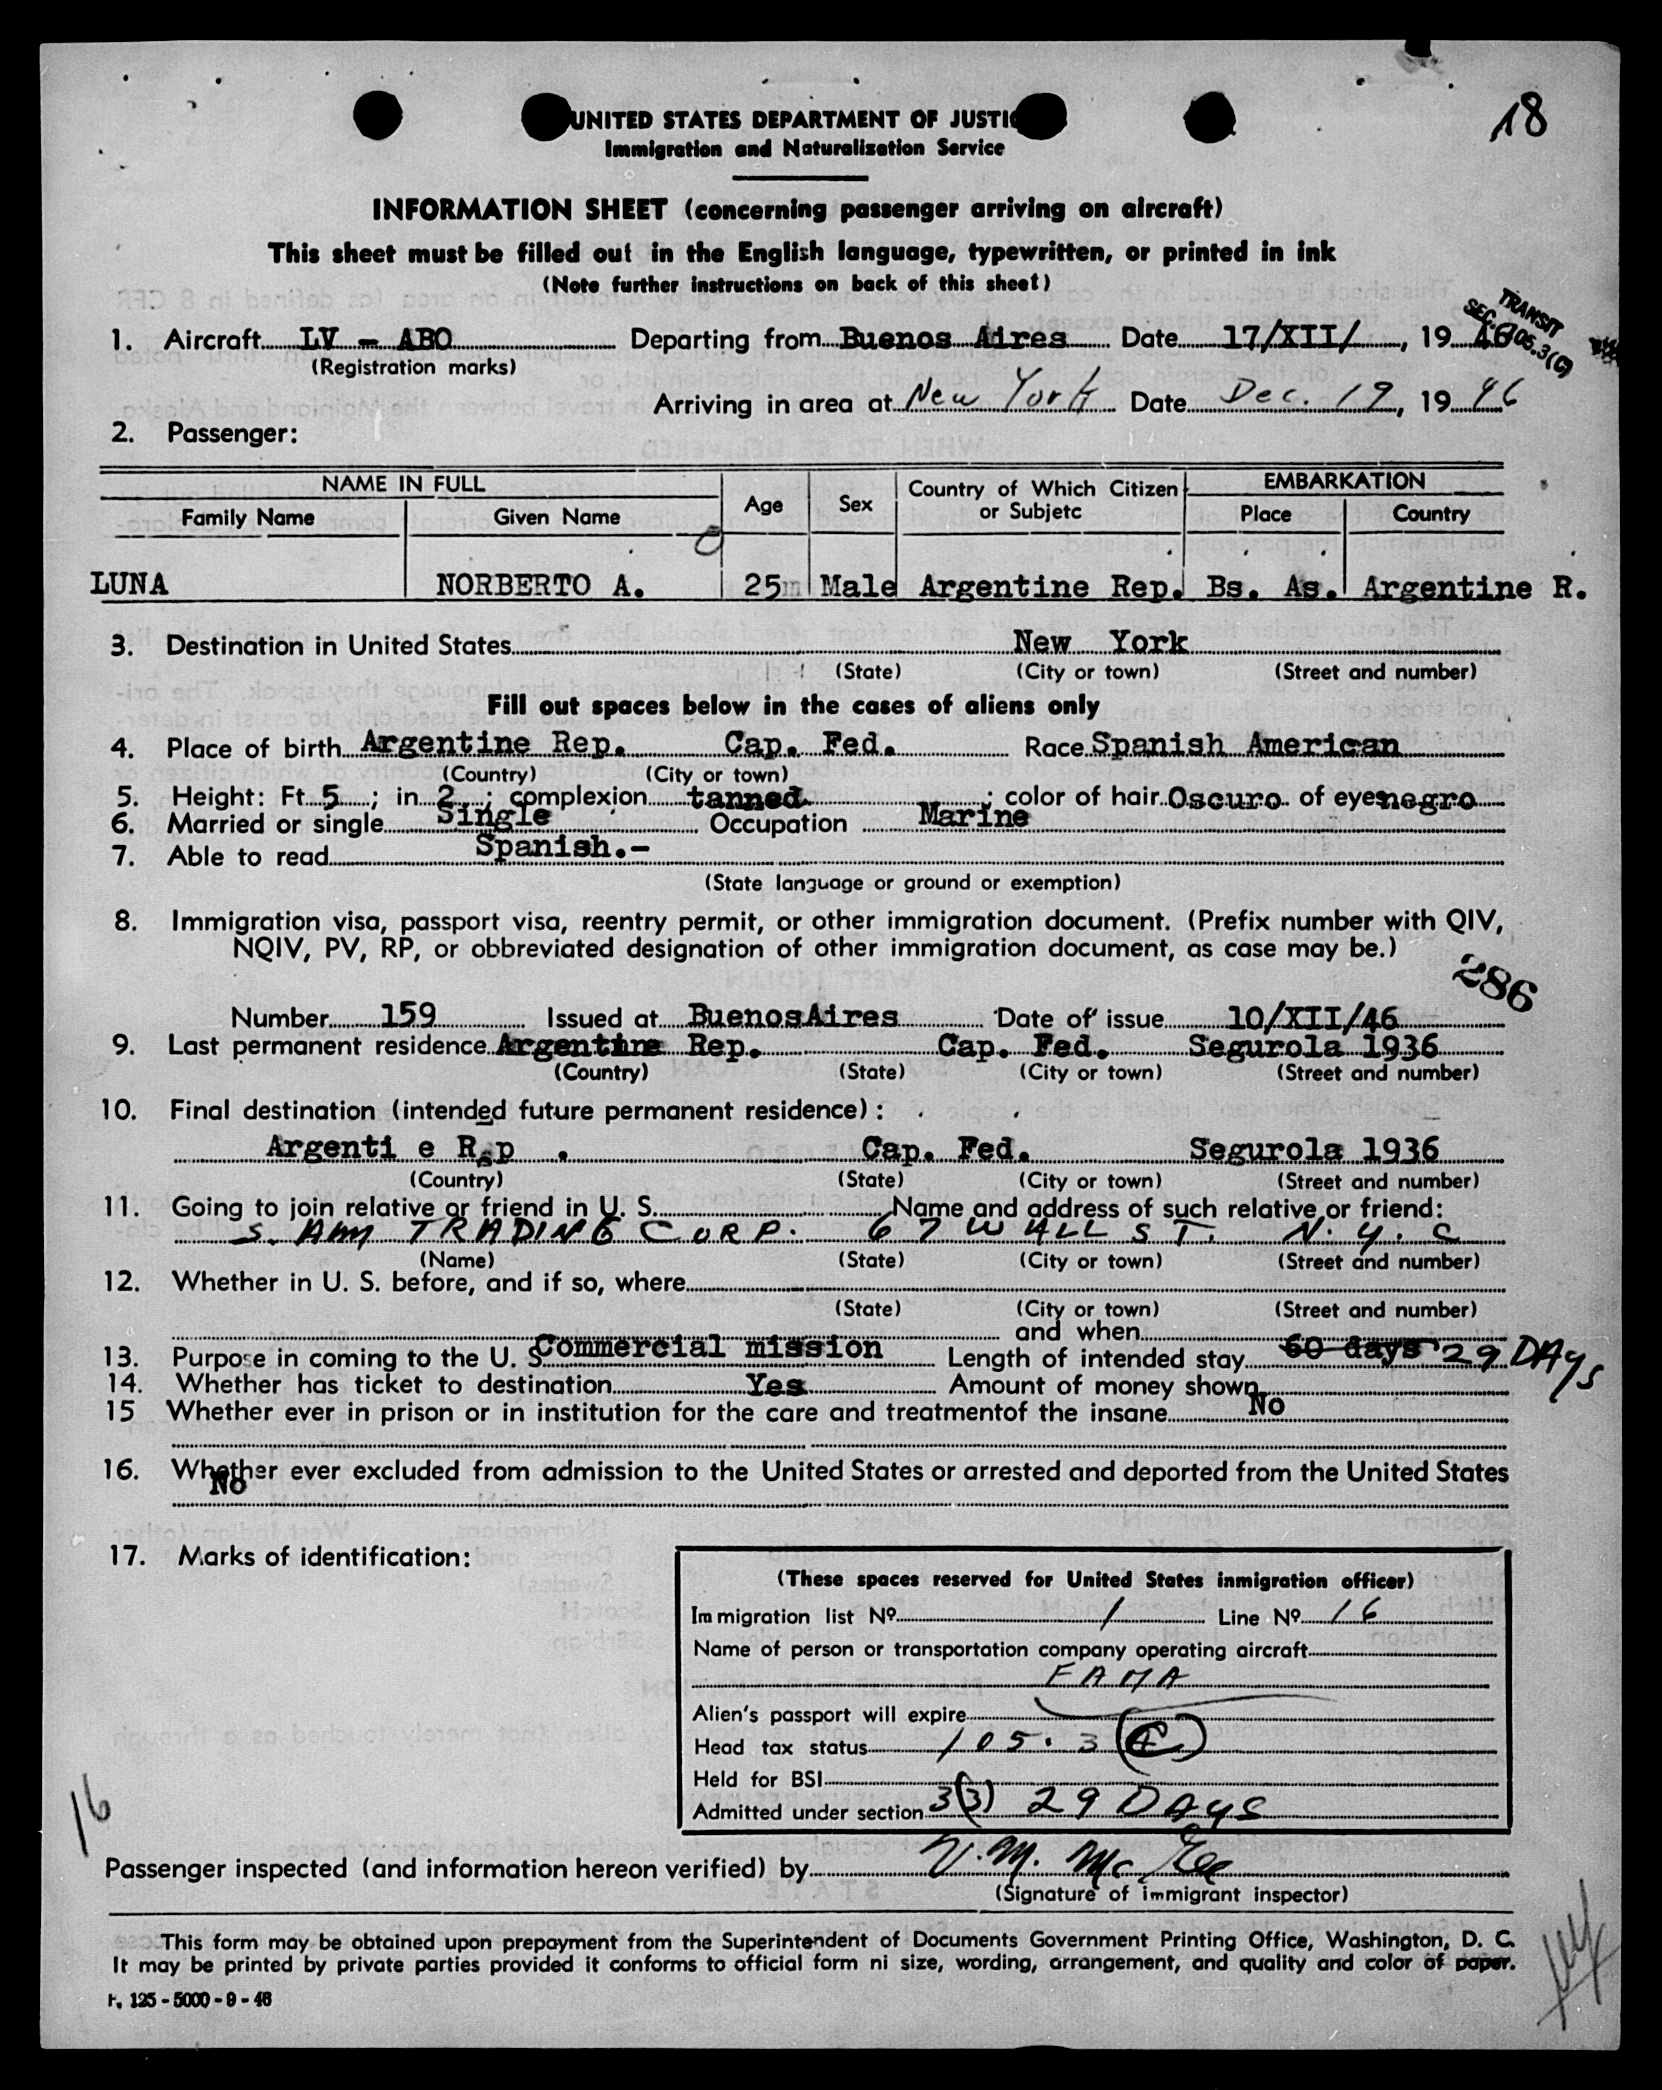 18
UNITED STATES DEPARTMENT OF JUSTI
Immigration and Naturalization Service
INFORMATION SHEET (concerning passenger arriving on aircraft)
This sheet must be filled out in the English language, typewritten, or printed in ink
(Note further instructions on back of this sheet)
TRANSIT
SEC. 105.3(C)
1. Aircraft LV - ABO Departing from Buenos Aires Date 17/XII/, 19 46
(Registration marks)
Arriving in area at New York Date Dec. 19, 19 46
2. Passenger:
NAME IN FULL Age Sex Country of Which Citizen or Subjetc EMBARKATION
Family Name Given Name Place Country
LUNA NORBERTO A. 25m Male Argentine Rep. Bs. As. Argentine R.
3. Destination in United States New York
(State) (City or town) (Street and number)
Fill out spaces below in the cases of aliens only
4. Place of birth Argentine Rep. Cap. Fed. Race Spanish American
(Country) (City or town)
5. Height: Ft 5; in 2; complexion tanned; color of hair Oscuro of eyes negro
6. Married or single Single Occupation Marine
7. Able to read Spanish.-
(State language or ground or exemption)
8. Immigration visa, passport visa, reentry permit, or other immigration document. (Prefix number with QIV,
NQIV, PV, RP, or obbreviated designation of other immigration document, as case may be.)
286
Number 159 Issued at BuenosAires Date of issue 10/XII/46
9. Last permanent residence Argentine Rep. Cap. Fed. Segurola 1936
(Country) (State) (City or town) (Street and number)
10. Final destination (intended future permanent residence):
Argenti e Rep. Cap. Fed. Segurola 1936
(Country) (State) (City or town) (Street and number)
11. Going to join relative or friend in U. S. Name and address of such relative or friend:
S. AM TRADING CORP. 67 WALL ST. N. Y. C
(Name) (State) (City or town) (Street and number)
12. Whether in U. S. before, and if so, where
(State) (City or town) (Street and number)
and when
13. Purpose in coming to the U. S. Commercial mission Length of intended stay 60 days 29 DAys
14. Whether has ticket to destination Yes Amount of money shown
15 Whether ever in prison or in institution for the care and treatmentof the insane No
16. Whether ever excluded from admission to the United States or arrested and deported from the United States
No
17. Marks of identification:
(These spaces reserved for United States inmigration officer)
Immigration list Nº 1 Line Nº 16
Name of person or transportation company operating aircraft
FAMA
Alien's passport will expire
Head tax status 105.3 (C)
Held for BSI
Admitted under section 3(3) 29 DAys
16
Passenger inspected (and information hereon verified) by V. M. McGee
(Signature of immigrant inspector)
This form may be obtained upon prepayment from the Superintendent of Documents Government Printing Office, Washington, D. C.
It may be printed by private parties provided it conforms to official form ni size, wording, arrangement, and quality and color of paper.
F. 125 - 5000 - 9 - 46